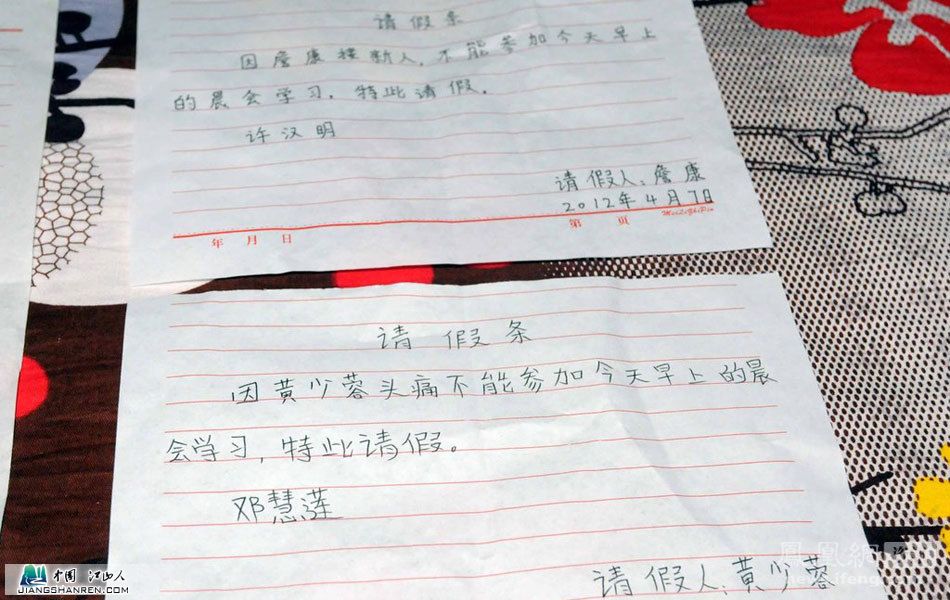 请假条
因詹康接新人，不能参加今天早上
的晨会学习，特此请假。
许汉明
请假人：詹康
2012年4月7日
年 月 日
第 页
请假条
因黄少蓉头痛不能参加今天早上的晨
会学习，特此请假。
邓慧莲
请假人：黄少蓉
中国 江山人
JIANGSHANREN.COM
凤凰網